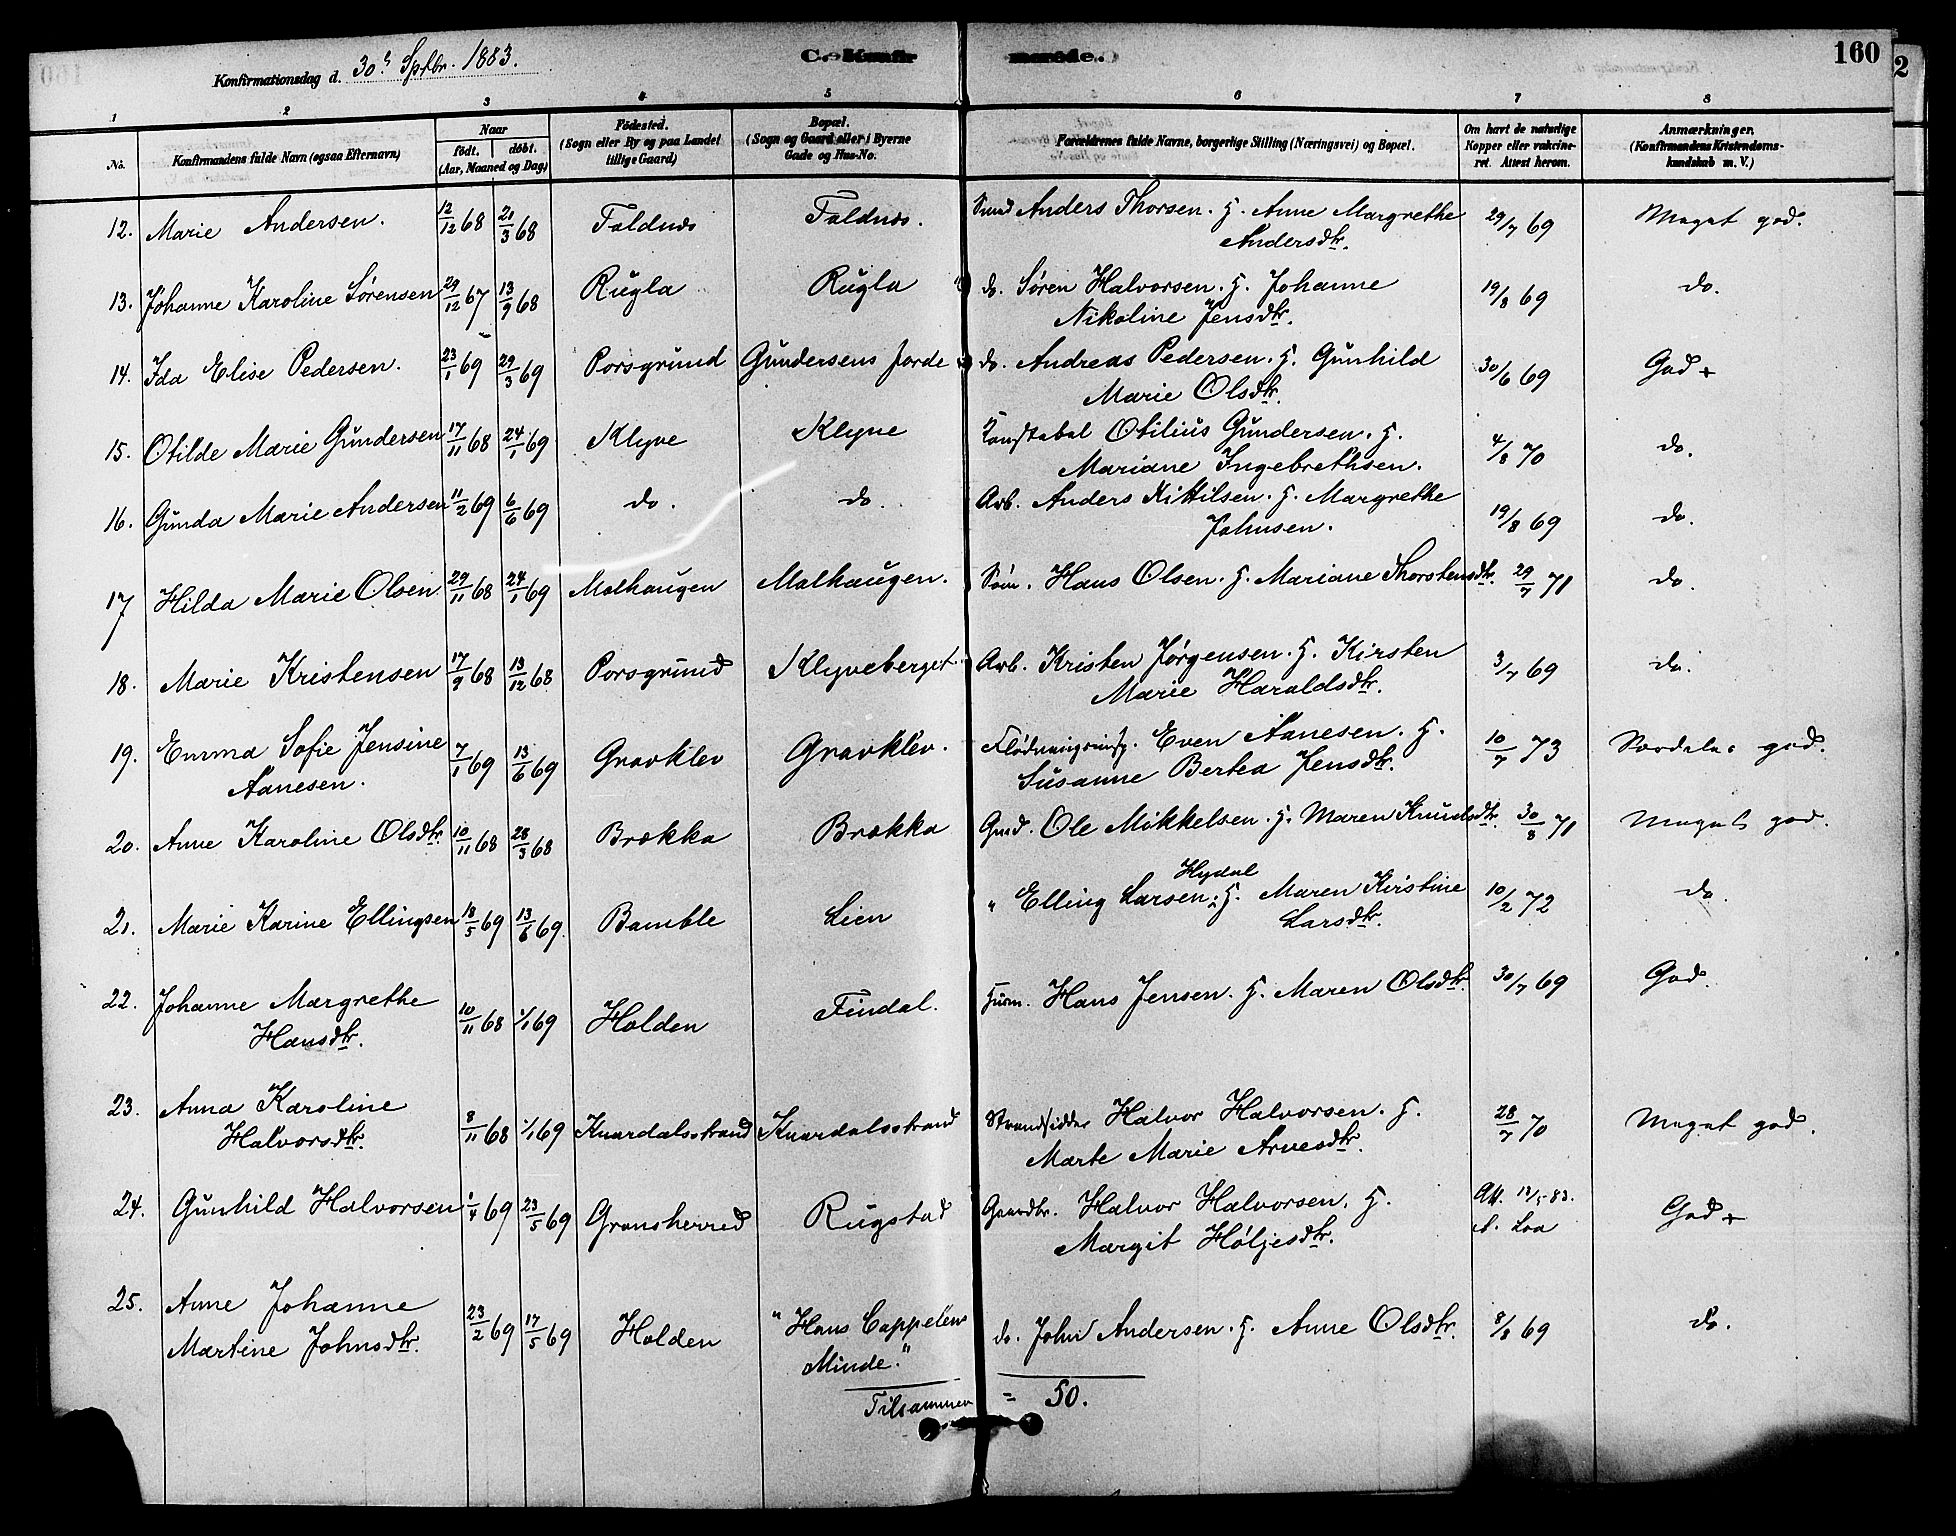 Konfirmationsdag d. 30 Sptbr. 1883.
C. Konfirmerede.
160
2
1 2 3 4 5 6 7 8
No.
Konfirmandens fulde Navn (ogsaa Efternavn)
Naar
født. døbt.
(Aar, Maaned og Dag)
Fødested.
(Sogn eller By og paa Landet
tillige Gaard)
Bopæl.
(Sogn og Gaard eller i Byerne
Gade og Hus-No.
Forældrenes fulde Navne, borgerlige Stilling (Næringsvei) og Bopæl.
Om havt de naturlige
Kopper eller vakcine-
ret. Attest herom.
Anmærkninger.
(Konfirmandens Kristendoms-
kundskab m. V.)
12. Marie Andersen. 12/12 68 21/3 68 Foldnes Foldnes. Smed Anders Thorsen. H. Anne Margrethe 29/7 69 Meget god.
Andersdtr.
13. Johanne Karoline Sørensen 29/12 67 13/9 68 Rugla Rugla do. Søren Halvorsen. H. Johanne 19/8 69 do.
Nikoline Jensdtr.
14. Ida Elise Pedersen. 23/1 69 29/3 69 Porsgrund Gundersens Jorde do. Andreas Pedersen. H. Gunhild 30/6 69 God +
Marie Olsdtr.
15. Otilde Marie Gundersen 17/11 68 24/1 69 Klyve Klyve Konstabel Otilius Gundersen. H. 4/8 70 do.
Mariane Ingebrethsen.
16. Gunda Marie Andersen 11/2 69 6/6 69 do. do. Arb. Anders Kittilsen. H. Margrethe 19/8 69 do.
Johnsen.
17 Hilda Marie Olsen 29/11 68 24/1 69 Molhaugen Molhaugen. Søm. Hans Olsen. H. Mariane Thorstensdtr. 29/7 71 do.
18. Marie Kristensen 17/9 68 13/12 68 Porsgrund Klyveberget. Arb. Kristen Jørgensen. H. Kirsten 3/7 69 do.
Marie Haraldsdtr.
19. Emma Sofie Jensine 7/1 69 13/6 69 Gravklev Gravklev. Flødningsinsp. Even Aanesen. H. 10/7 73 Særdeles god.
Aanesen. Susanne Bertea Jensdtr.
20. Anne Karoline Olsdtr. 10/11 68 28/3 68 Brækka Brækka Gmd. Ole Mikkelsen. H. Maren Knudsdtr. 30/8 71 Meget god.
21. Marie Karine Ellingsen 18/5 69 13/6 69. Bamble Lien " Elling Larsen Hydal. H. Maren Kirstine 10/2 72 do.
Larsdtr.
22. Johanne Margrethe 10/11 68 1/1 69 Holden Findal. Husm. Hans Jensen. H. Maren Olsdtr. 30/7 69 God.
Hansdtr.
23. Anna Karoline 8/11 68 1/1 69 Knardalsstrand Knardalsstrand Strandsidder Halvor Halvorsen. H. 28/7 70 Meget god.
Halvorsdtr. Marte Marie Arnesdtr.
24. Gunhild Halvorsen 1/4 69 23/5 69 Gransherred Rugstad Gaardbr. Halvor Halvorsen. H. Att. 13/5 83. God +
Margit Høljesdtr.
25. Anne Johanne 23/2 69 17/5 69 Holden "Hans Cappelens do. John Andersen. H. Anne Olsdtr. 8/8 69 do.
Martine Johnsdtr. Minde."
Tilsammen = 50.